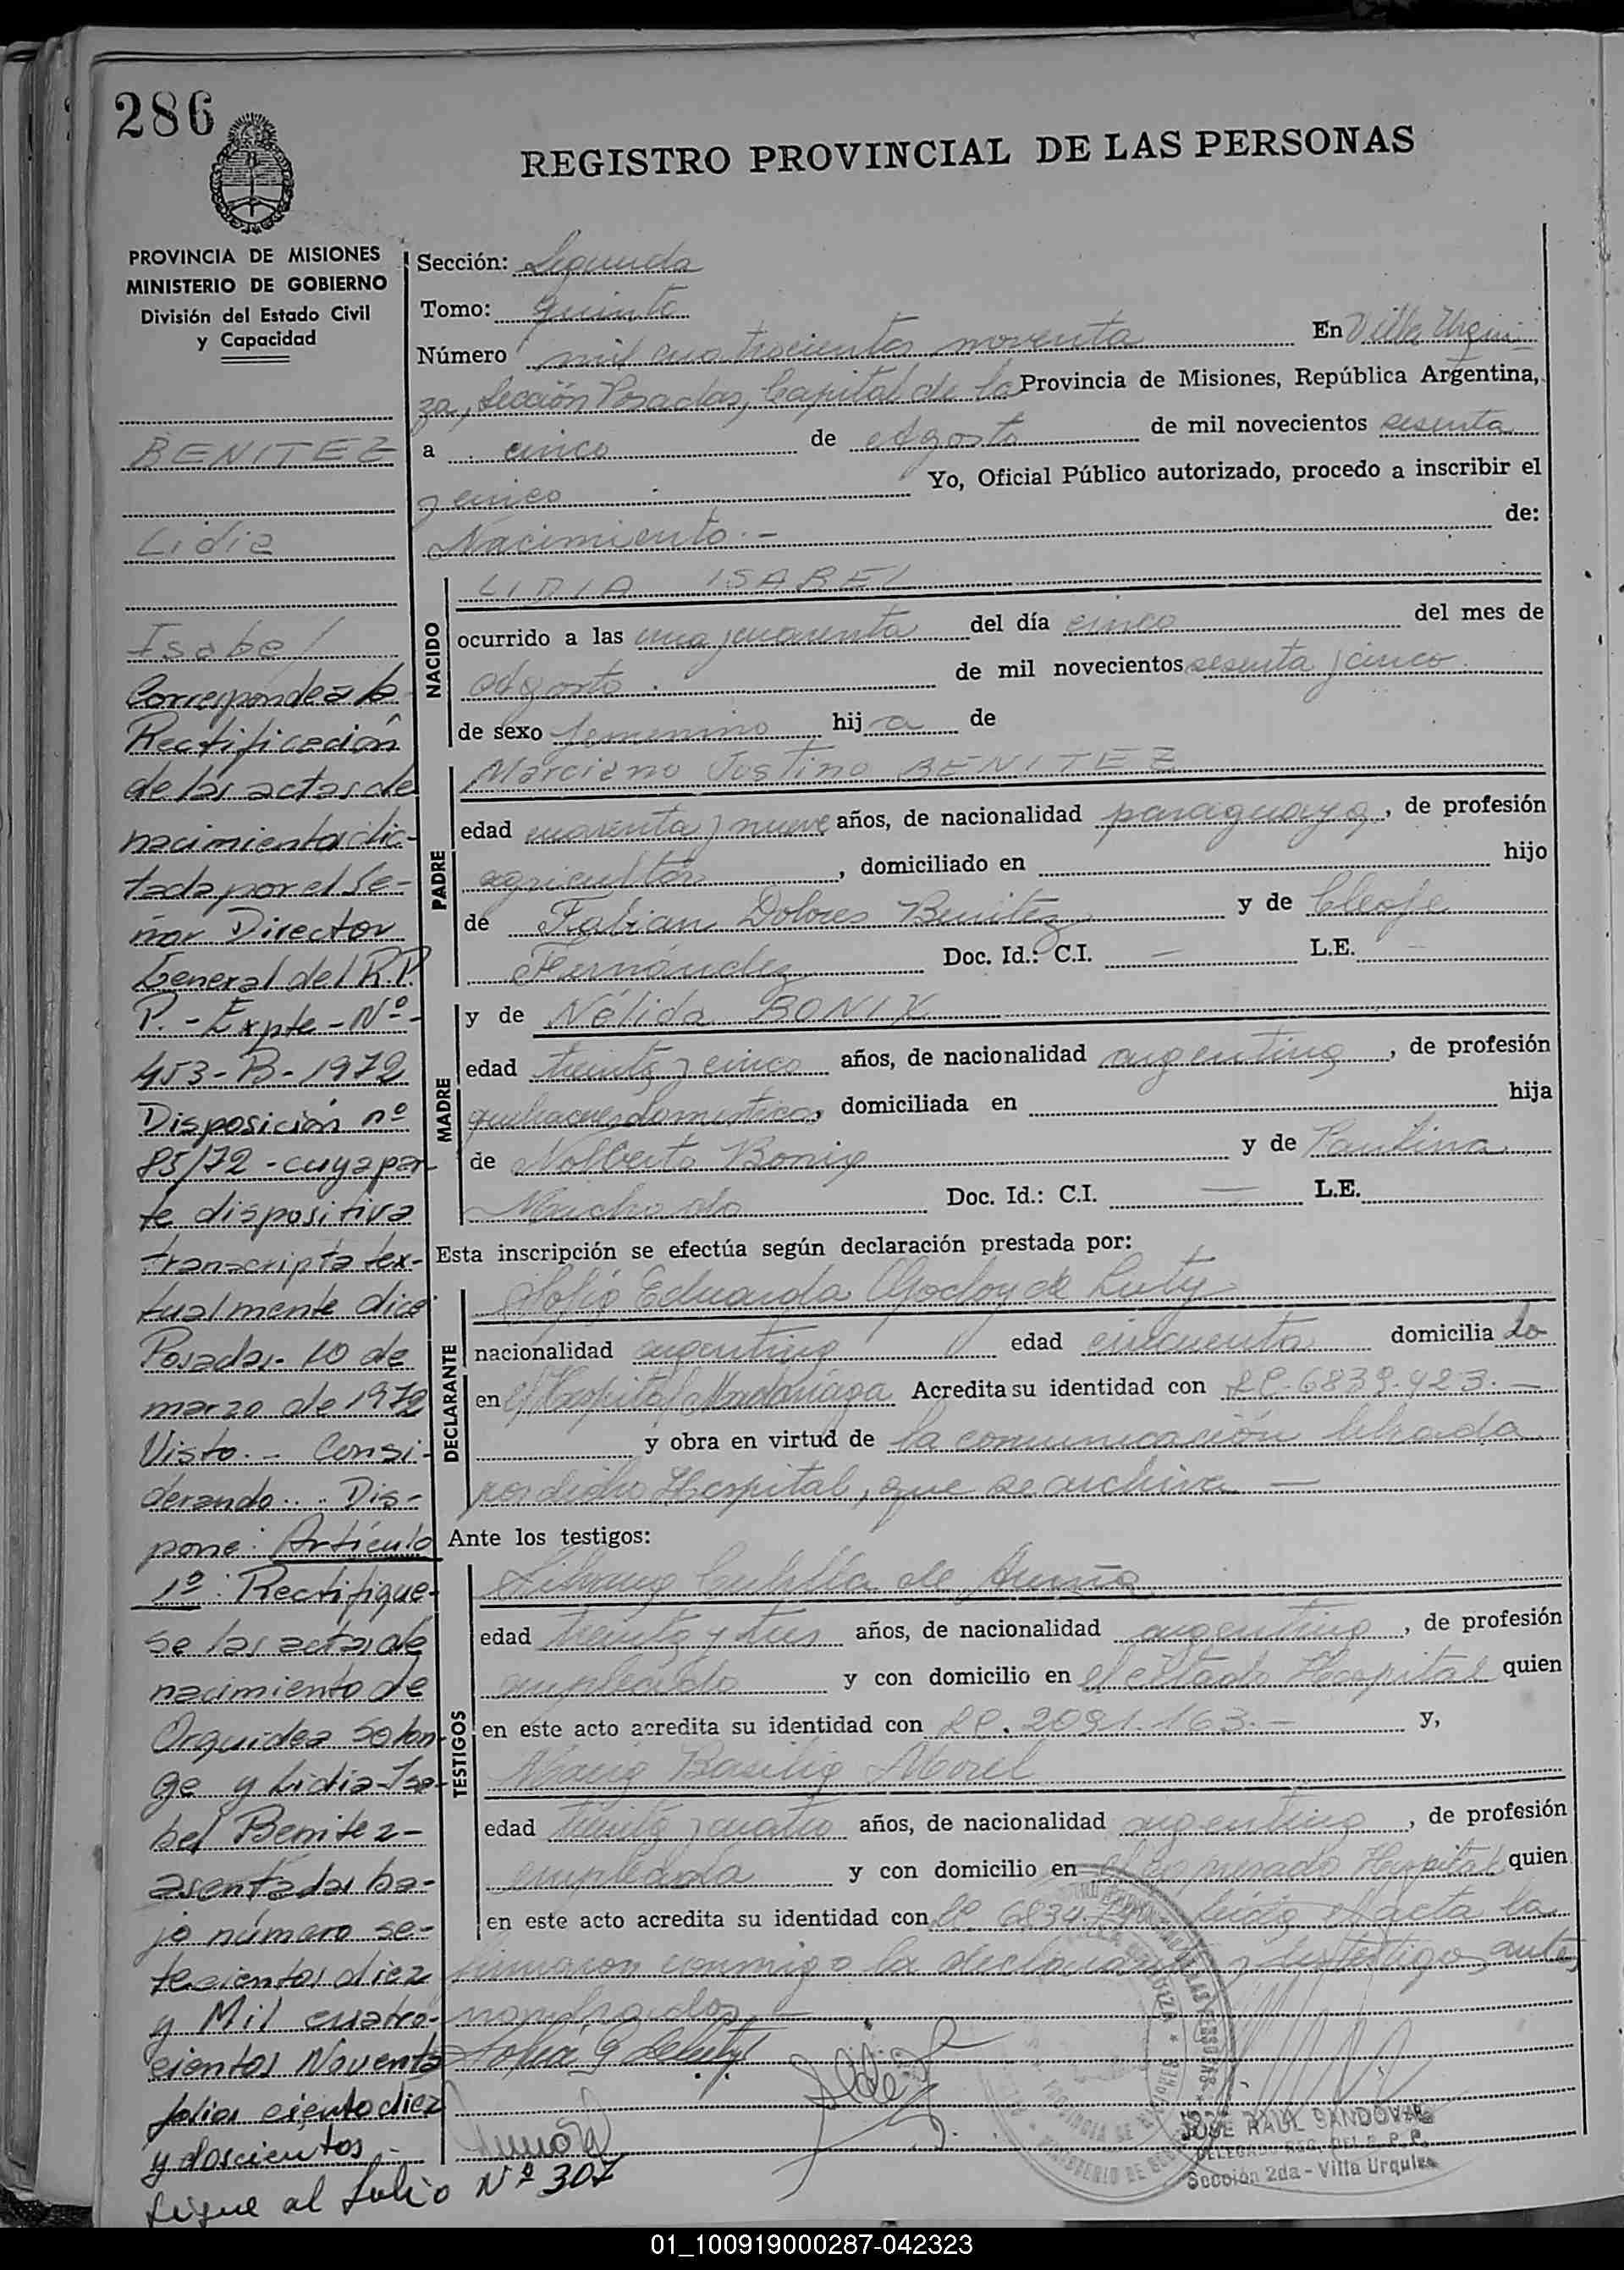 286
REGISTRO PROVINCIAL DE LAS PERSONAS
PROVINCIA DE MISIONES
MINISTERIO DE GOBIERNO
División del Estado Civil
y Capacidad
BENITEZ
Lidia
Isabel
Corresponde a la
Rectificación
de las actas de
nacimiento dic-
tada por el Se-
ñor Director
General del R.P.
P. - Expte - Nº -
453-B-1972
Disposición nº
85/72 - cuya par-
te dispositiva
transcripta tex-
tualmente dice:
Posadas - 10 de
marzo de 1972
Visto. - Consi-
derando... Dis-
pone: Artículo
1º: Rectifique-
se las actas de
nacimiento de
Orquidea Solan-
ge y Lidia Isa-
bel Benitez -
asentadas ba-
jo número se-
tecientos diez
y Mil cuatro-
cientos Noventa
folios ciento diez
y doscientos -
sigue al folio Nº 307
Sección: Segunda
Tomo: quinto
Número mil cuatrocientos noventa En Villa Urqui-
za, Sección Posadas, Capital de la Provincia de Misiones, República Argentina,
a cinco de Agosto de mil novecientos sesenta
y cinco Yo, Oficial Público autorizado, procedo a inscribir el
Nacimiento.- de:
NACIDO
LIDIA ISABEL
ocurrido a las una y cuarenta del día cinco del mes de
Agosto de mil novecientos sesenta y cinco
de sexo femenino hij a de
PADRE
Marciano Justino BENITEZ
edad cuarenta y nueve años, de nacionalidad paraguaya, de profesión
agricultor, domiciliado en hijo
de Fabian Dolores Benitez y de Cleofe
Fernández Doc. Id.: C.I. — L.E. —
MADRE
y de Nélida BONIX
edad treinta y cinco años, de nacionalidad argentina, de profesión
quehaceres domesticos, domiciliada en hija
de Nolberto Bonix y de Paulina
Machado Doc. Id.: C.I. — L.E.
Esta inscripción se efectúa según declaración prestada por:
DECLARANTE
Sofia Eduarda Godoy de Luty
nacionalidad argentina edad cincuenta domicilia da
en el Hospital Madariaga Acredita su identidad con LC. 6839.423.—
y obra en virtud de la comunicación librada
por dicho Hospital, que se archiva —
Ante los testigos:
TESTIGOS
de Acuña
edad treinta y tres años, de nacionalidad argentina, de profesión
empleado y con domicilio en el citado Hospital quien
en este acto acredita su identidad con LC. 2091.163.— y,
Maria Basilia Morel
edad treinta y cuatro años, de nacionalidad argentina, de profesión
empleada y con domicilio en el expresado Hospital quien
en este acto acredita su identidad con LC. leida el acta la
firmaron conmigo la declarante y los testigos ante
nombrados —
JOSE RAUL SANDOVAL
DELEGADO REG. DEL R. P. P.
Sección 2da - Villa Urquiza
01_100919000287-042323